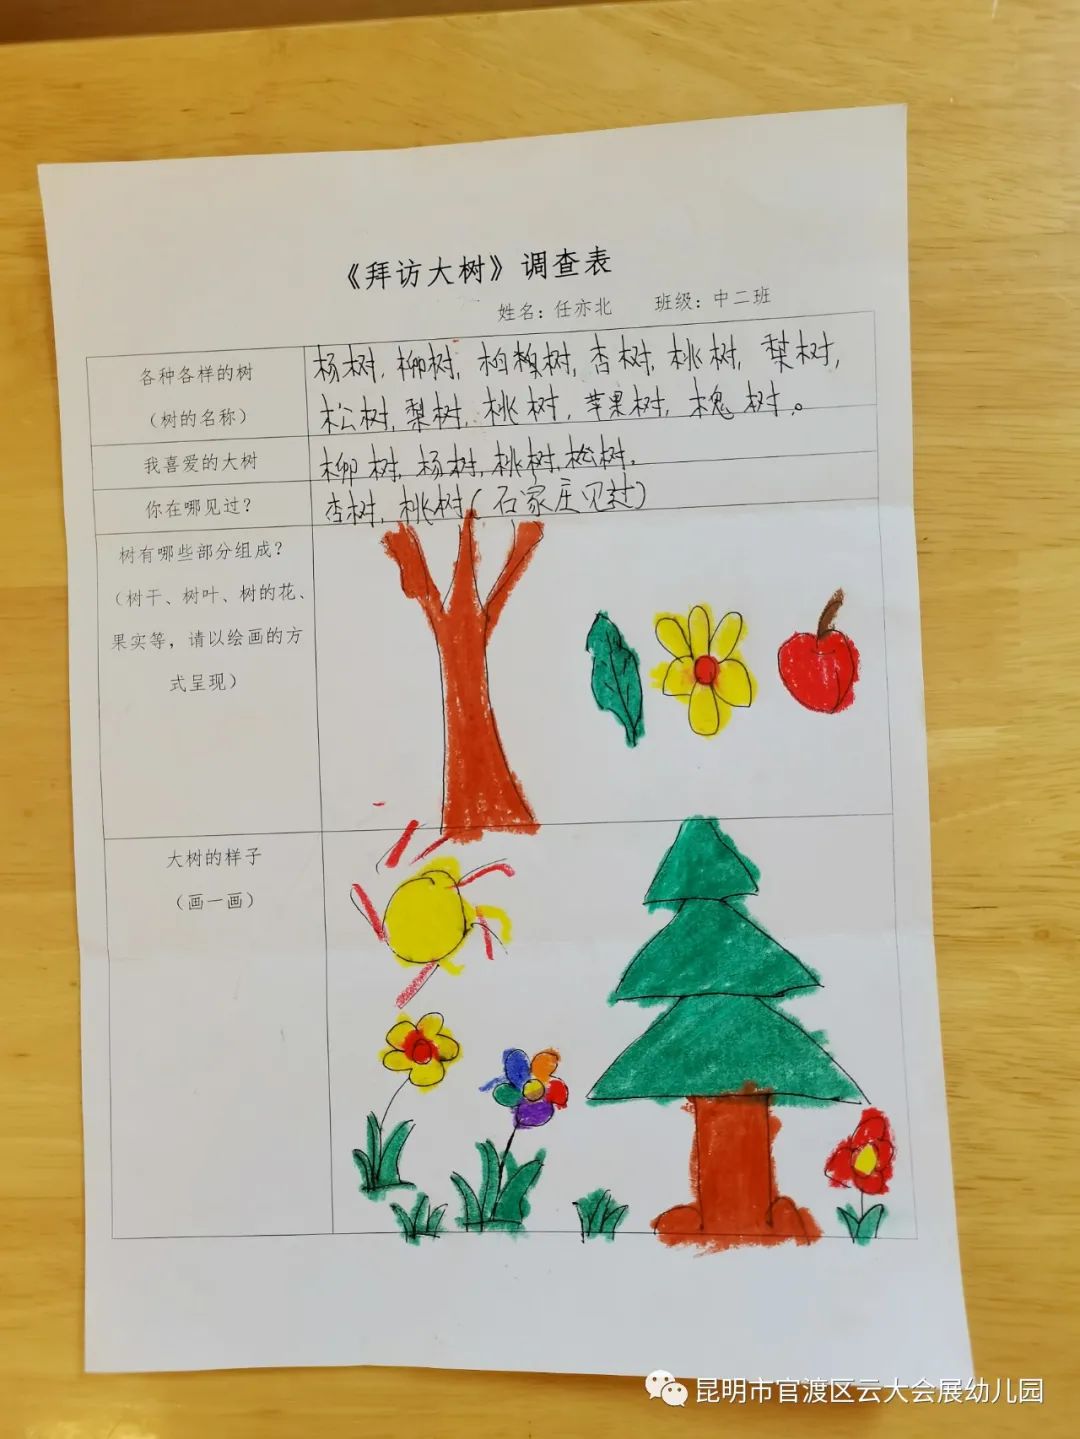 《拜访大树》调查表
姓名：任亦北 班级：中二班
各种各样的树
（树的名称）
杨树，柳树，柏树，杏树，桃树，梨树，
松树，梨树，桃树，苹果树，槐树。
我喜爱的大树
柳树，杨树，桃树，松树。
你在哪见过？
杏树，桃树（石家庄见过）
树有哪些部分组成？
（树干、树叶、树的花、
果实等，请以绘画的方
式呈现）
大树的样子
（画一画）
昆明市官渡区云大会展幼儿园